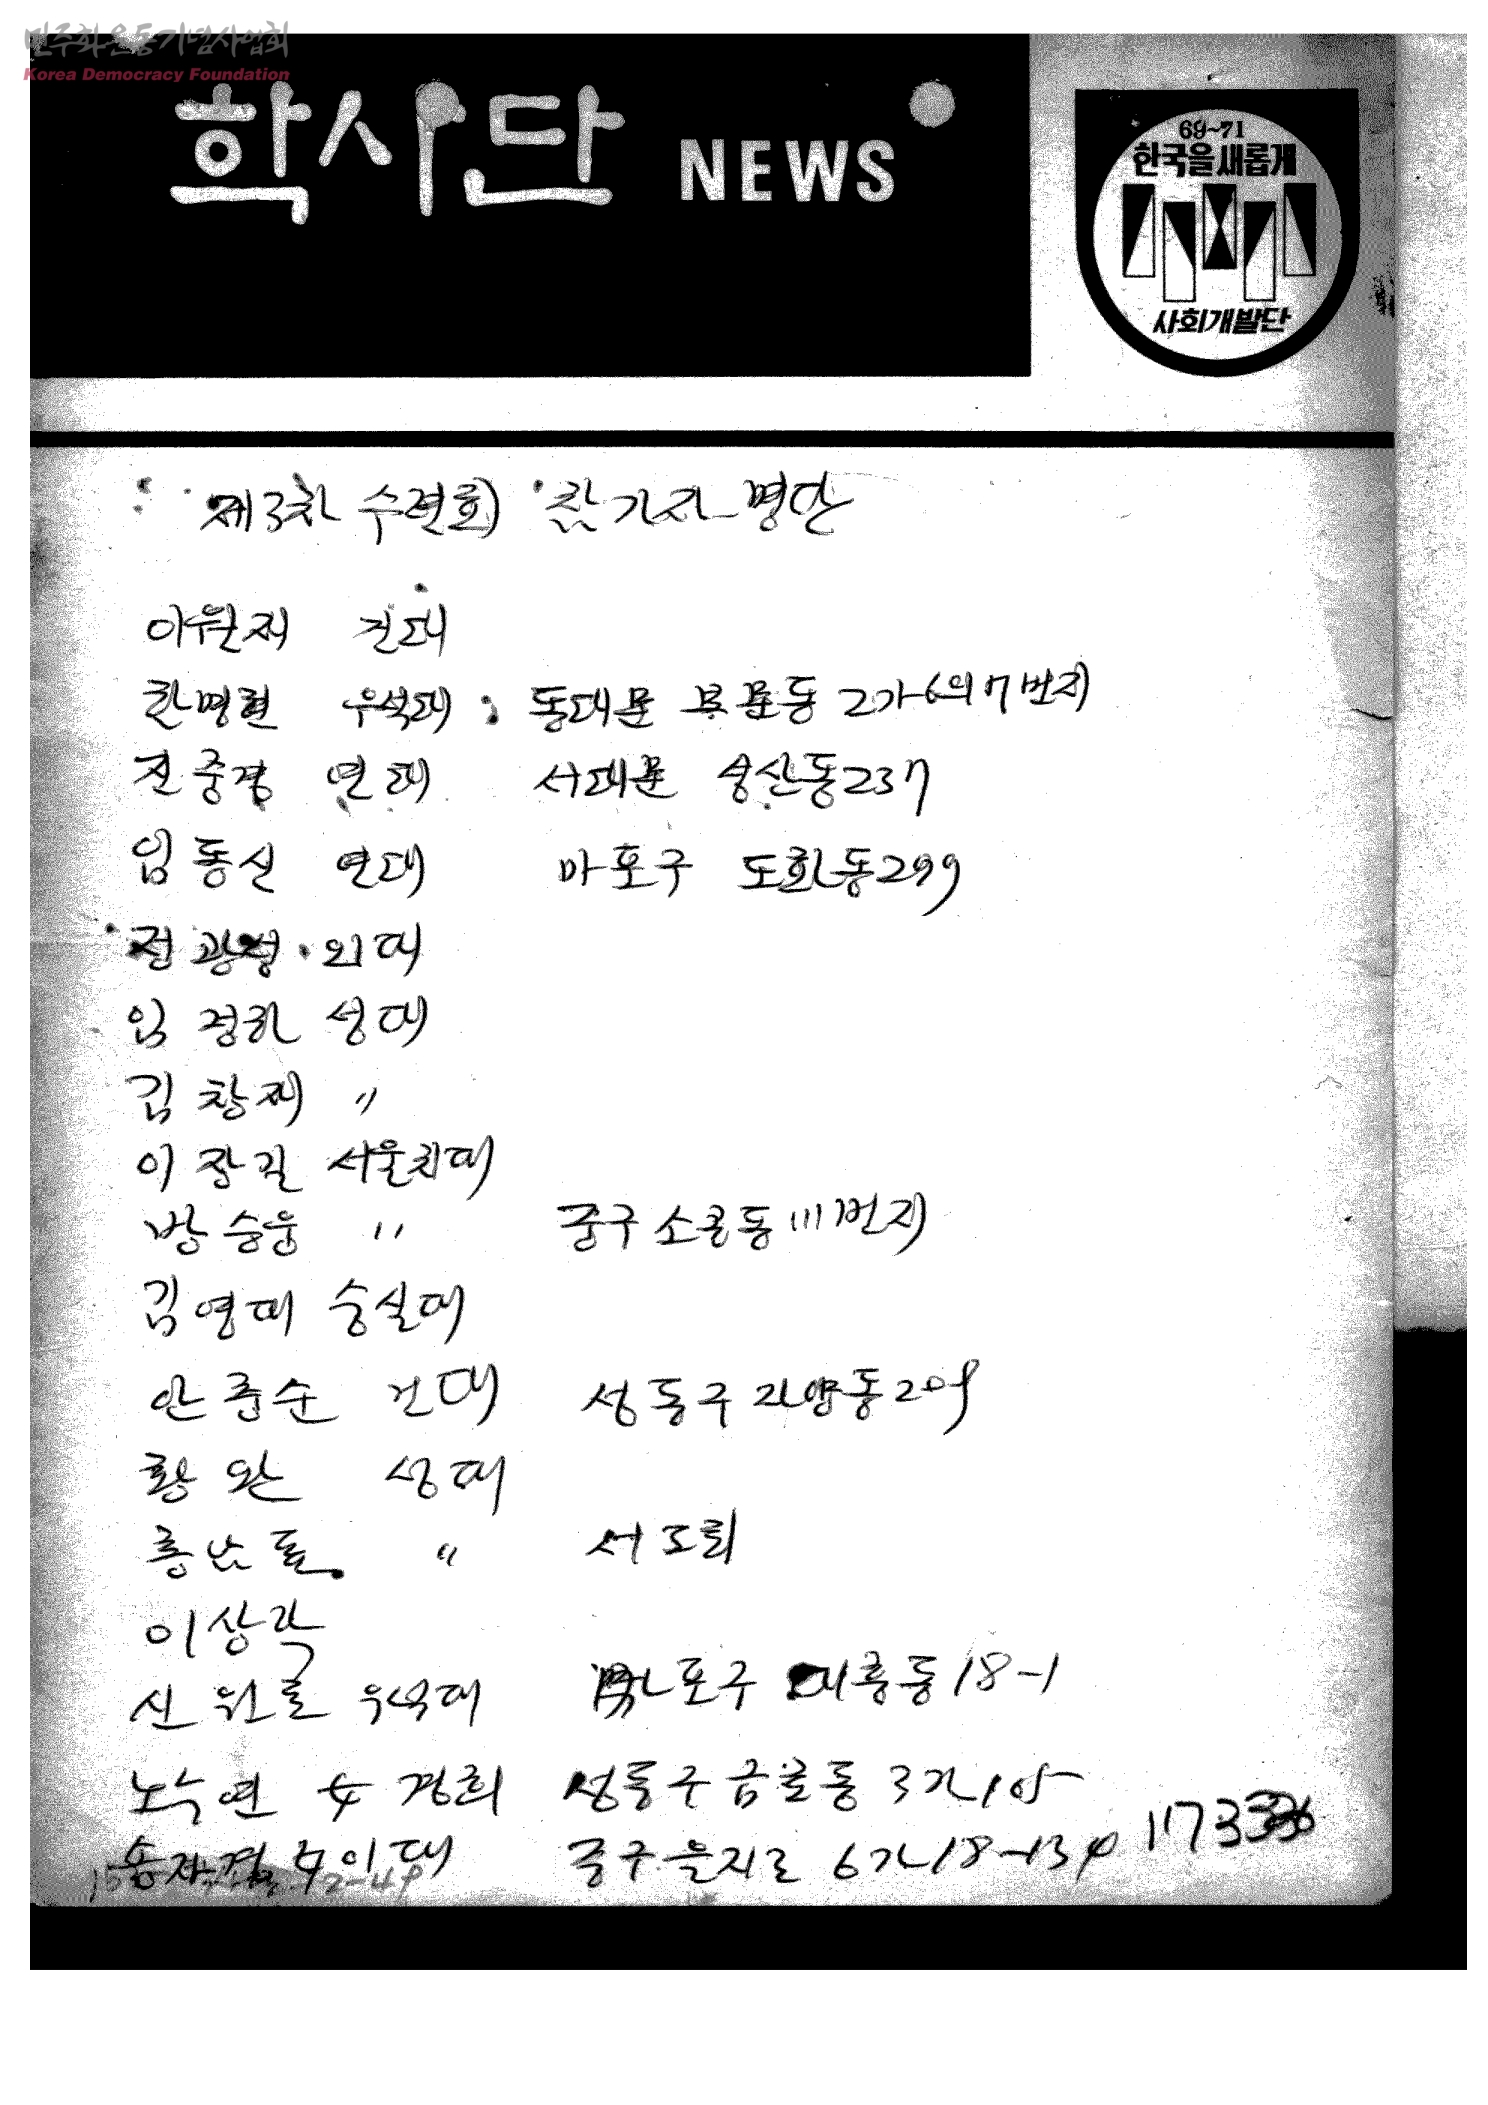 민주화운동기념사업회
Korea Democracy Foundation
학사단 NEWS
69~71
한국을새롭게
사회개발단
제3차 수련회 참가자 명단
이원재 건대
한명현 우석대 : 동대문 보문동 2가 6의7번지
전중경 연대 서대문 성산동237
임동신 연대 마포구 도화동299
전광성 외대
임정하 성대
김창제 〃
이장길 서울치대
방승웅 〃 중구 소공동 111번지
김영태 숭실대
안준순 건대 성동구 자양동209
황완 성대
홍남돌 〃 서도회
이상락
신원룡 우석대 포구 대흥동 18-1
노숙연 女 경희 성동구 금호동 3가 105
송자경 女 이대 중구 을지로 6가 18-134